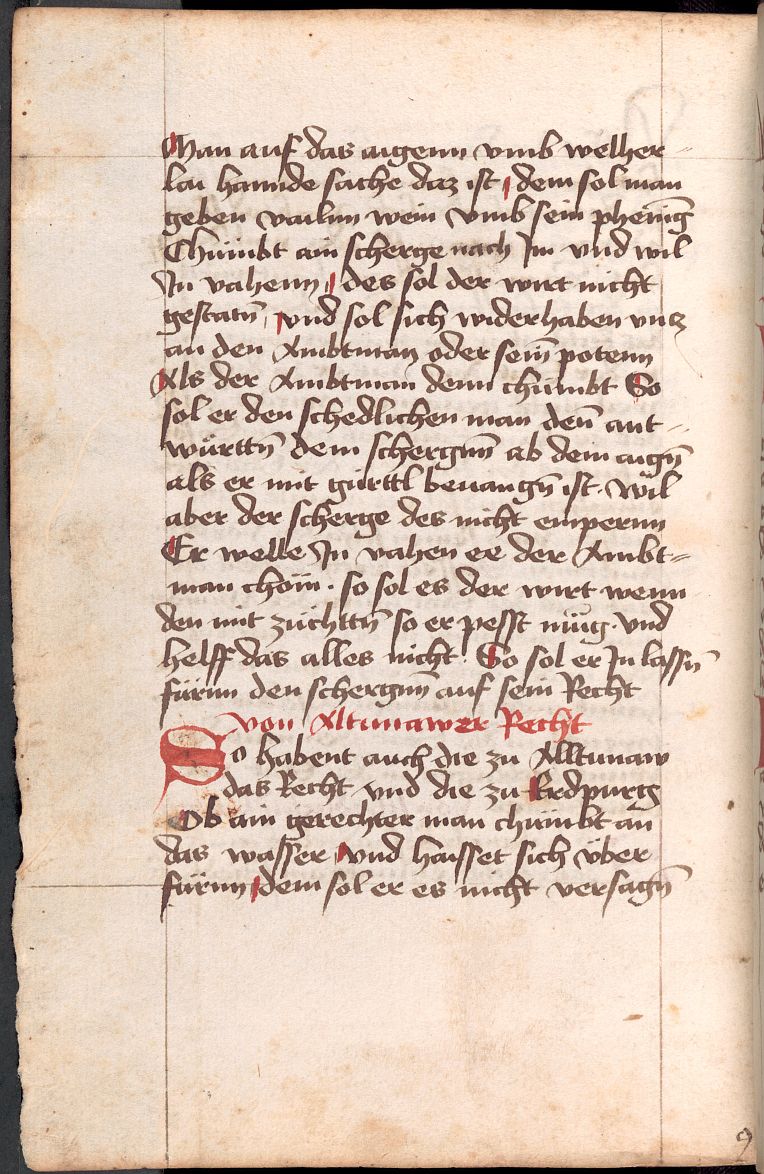 Man auf das aigenn vmb welher-
lai hannde sache daz ist, dem sol man
geben vailnn wein vmb sein phenīg
Chumbt ain scherge nach Im vnd wil
In vahenn, des sol der wirt nicht
gestatn̄, vnd sol sich widerhaben vncz
an den Ambtman oder sein̄ potenn
Als der Ambtman denn chumbt So
sol er den schedlichen man den̄ ant-
wurttn̄ dem schergnn̄ ab dem aign̄
als er mit gürttl beuangn̄ ist. Wil
aber der scherge des nicht empernn
Er welle In vahen ee der Ambt-
man chöm. so sol es der wirt wenn
den mit züchttn̄ so er pesst müg. vnd
helff das alles nicht. So sol er In lassn̄
fürnn den schergnn̄ auf sein Recht
von Altunawer Recht
So habent auch die zu Alltunaw
das Recht vnd die zu Erdpurg
Ob ain gerechter man chumbt an
das wasser, vnd haisset sich vber
fürnn, dem sol er es nicht versagn̄
9